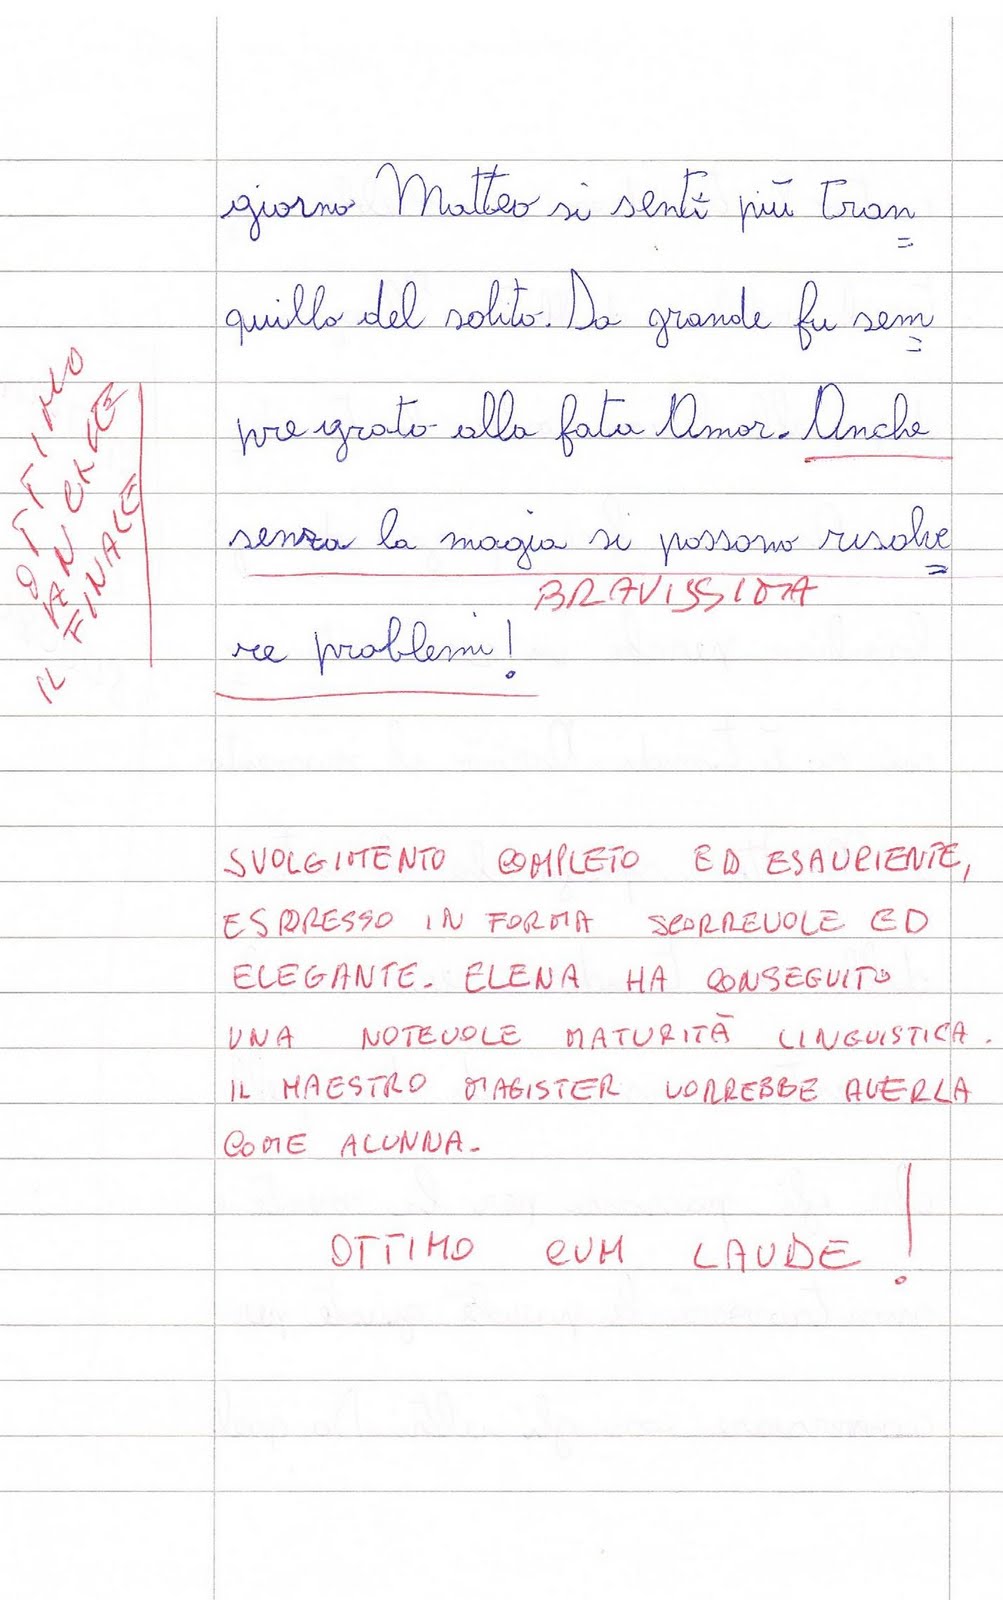 giorno Matteo si sentì più tran=
quillo del solito. Da grande fu sem=
pre grato alla fata Amor. Anche
senza la magia si possono risolve=
BRAVISSIMA
re problemi!
OTTIMO
ANCHE
IL FINALE
SVOLGIMENTO COMPLETO ED ESAURIENTE,
ESPRESSO IN FORMA SCORREVOLE ED
ELEGANTE. ELENA HA CONSEGUITO
UNA NOTEVOLE MATURITÀ LINGUISTICA.
IL MAESTRO MAGISTER VORREBBE AVERLA
COME ALUNNA.
OTTIMO CUM LAUDE!